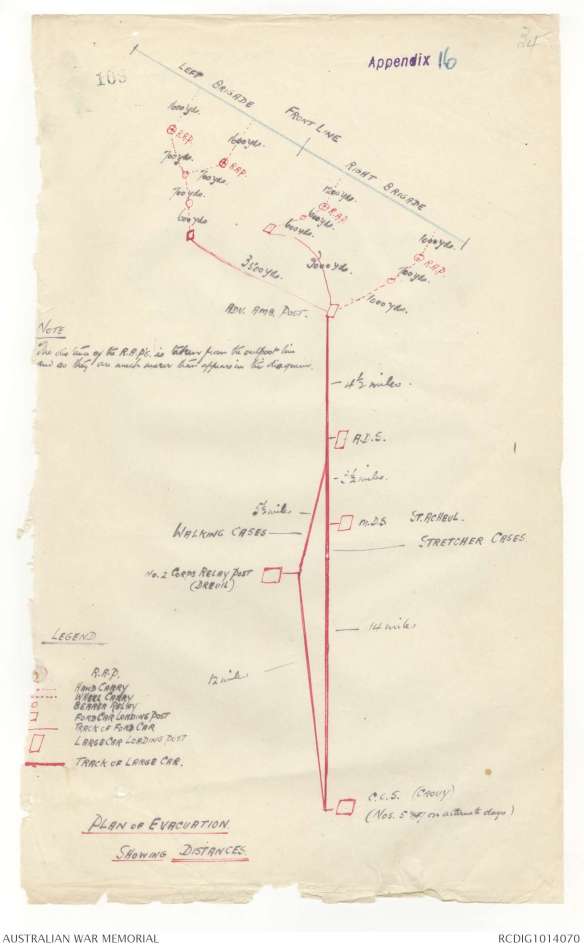 34
Appendix 16
108
LEFT BRIGADE
FRONT LINE
RIGHT BRIGADE
1600 yds.
1600 yds.
R.A.P.
R.A.P.
700 yds.
700 yds.
700 yds.
600 yds.
1200 yds.
R.A.P.
600 yds.
1000 yds.
R.A.P.
700 yds.
1000 yds.
3500 yds.
3000 yds.
ADV. AMB. POST.
NOTE
The distance of the R.A.P's. is taken from the outpost line
and as they are much nearer than appears in the diagram.
4½ miles.
A.D.S.
½ miles.
5½ miles
WALKING CASES
M.D.S. ST. ACHEUL.
STRETCHER CASES
No. 2 CORPS RELAY POST
(DREUIL)
14 miles
12 miles
LEGEND
R.A.P.
HAND CARRY
WHEEL CARRY
BEARER RELAY
FORD CAR LOADING POST
TRACK OF FORD CAR
LARGE CAR LOADING POST
TRACK OF LARGE CAR.
C.C.S. (CROUY)
(Nos. 5 & 47 on alternate days)
PLAN OF EVACUATION
SHOWING DISTANCES
AUSTRALIAN WAR MEMORIAL
RCDIG1014070